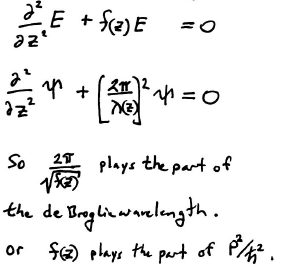 ∂²/∂z² E + f(z) E = 0
∂²/∂z² ψ + [2π/λ(z)]² ψ = 0
So 2π/√f(z) plays the part of
the de Broglie wavelength.
or f(z) plays the part of P²/ℏ².